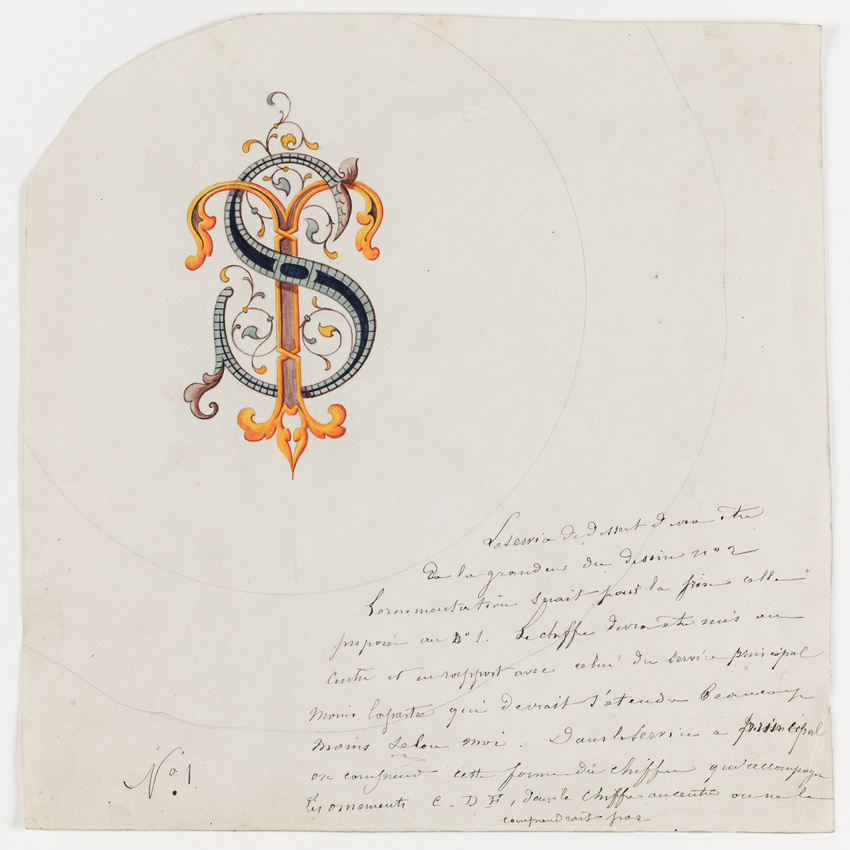 Le service de dessert devra être
De la grandeur du dessin nº 2
L'ornementation serait pour la frise celle
proposée au Nº 1. Le chiffre devra être mis au
Centre et en rapport avec celui du Service principal
Moins la partie qui devrait s'étendre Beaucoup
Moins Selon moi. Dans le service principal
on comprend cette forme du chiffre qu'accompagne
les ornements C. D, dans le Chiffre au centre on ne le
comprendrait pas
Nº 1